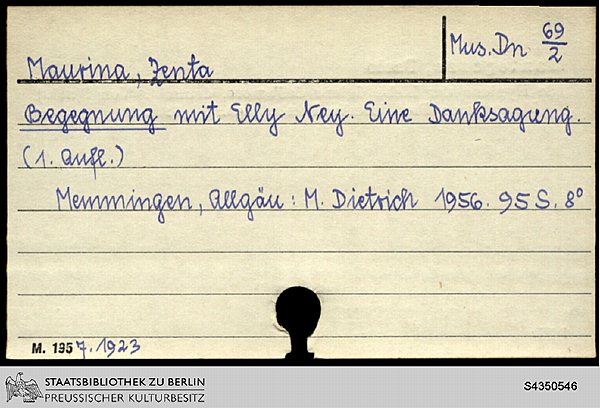 Maurina, Zenta
Mus. Dn 69/2
Begegnung mit Elly Ney. Eine Danksagung.
(1. Aufl.)
Memmingen, Allgäu: M. Dietrich 1956. 95 S. 8°
M. 1957. 1923
STAATSBIBLIOTHEK ZU BERLIN
PREUSSISCHER KULTURBESITZ
S4350546